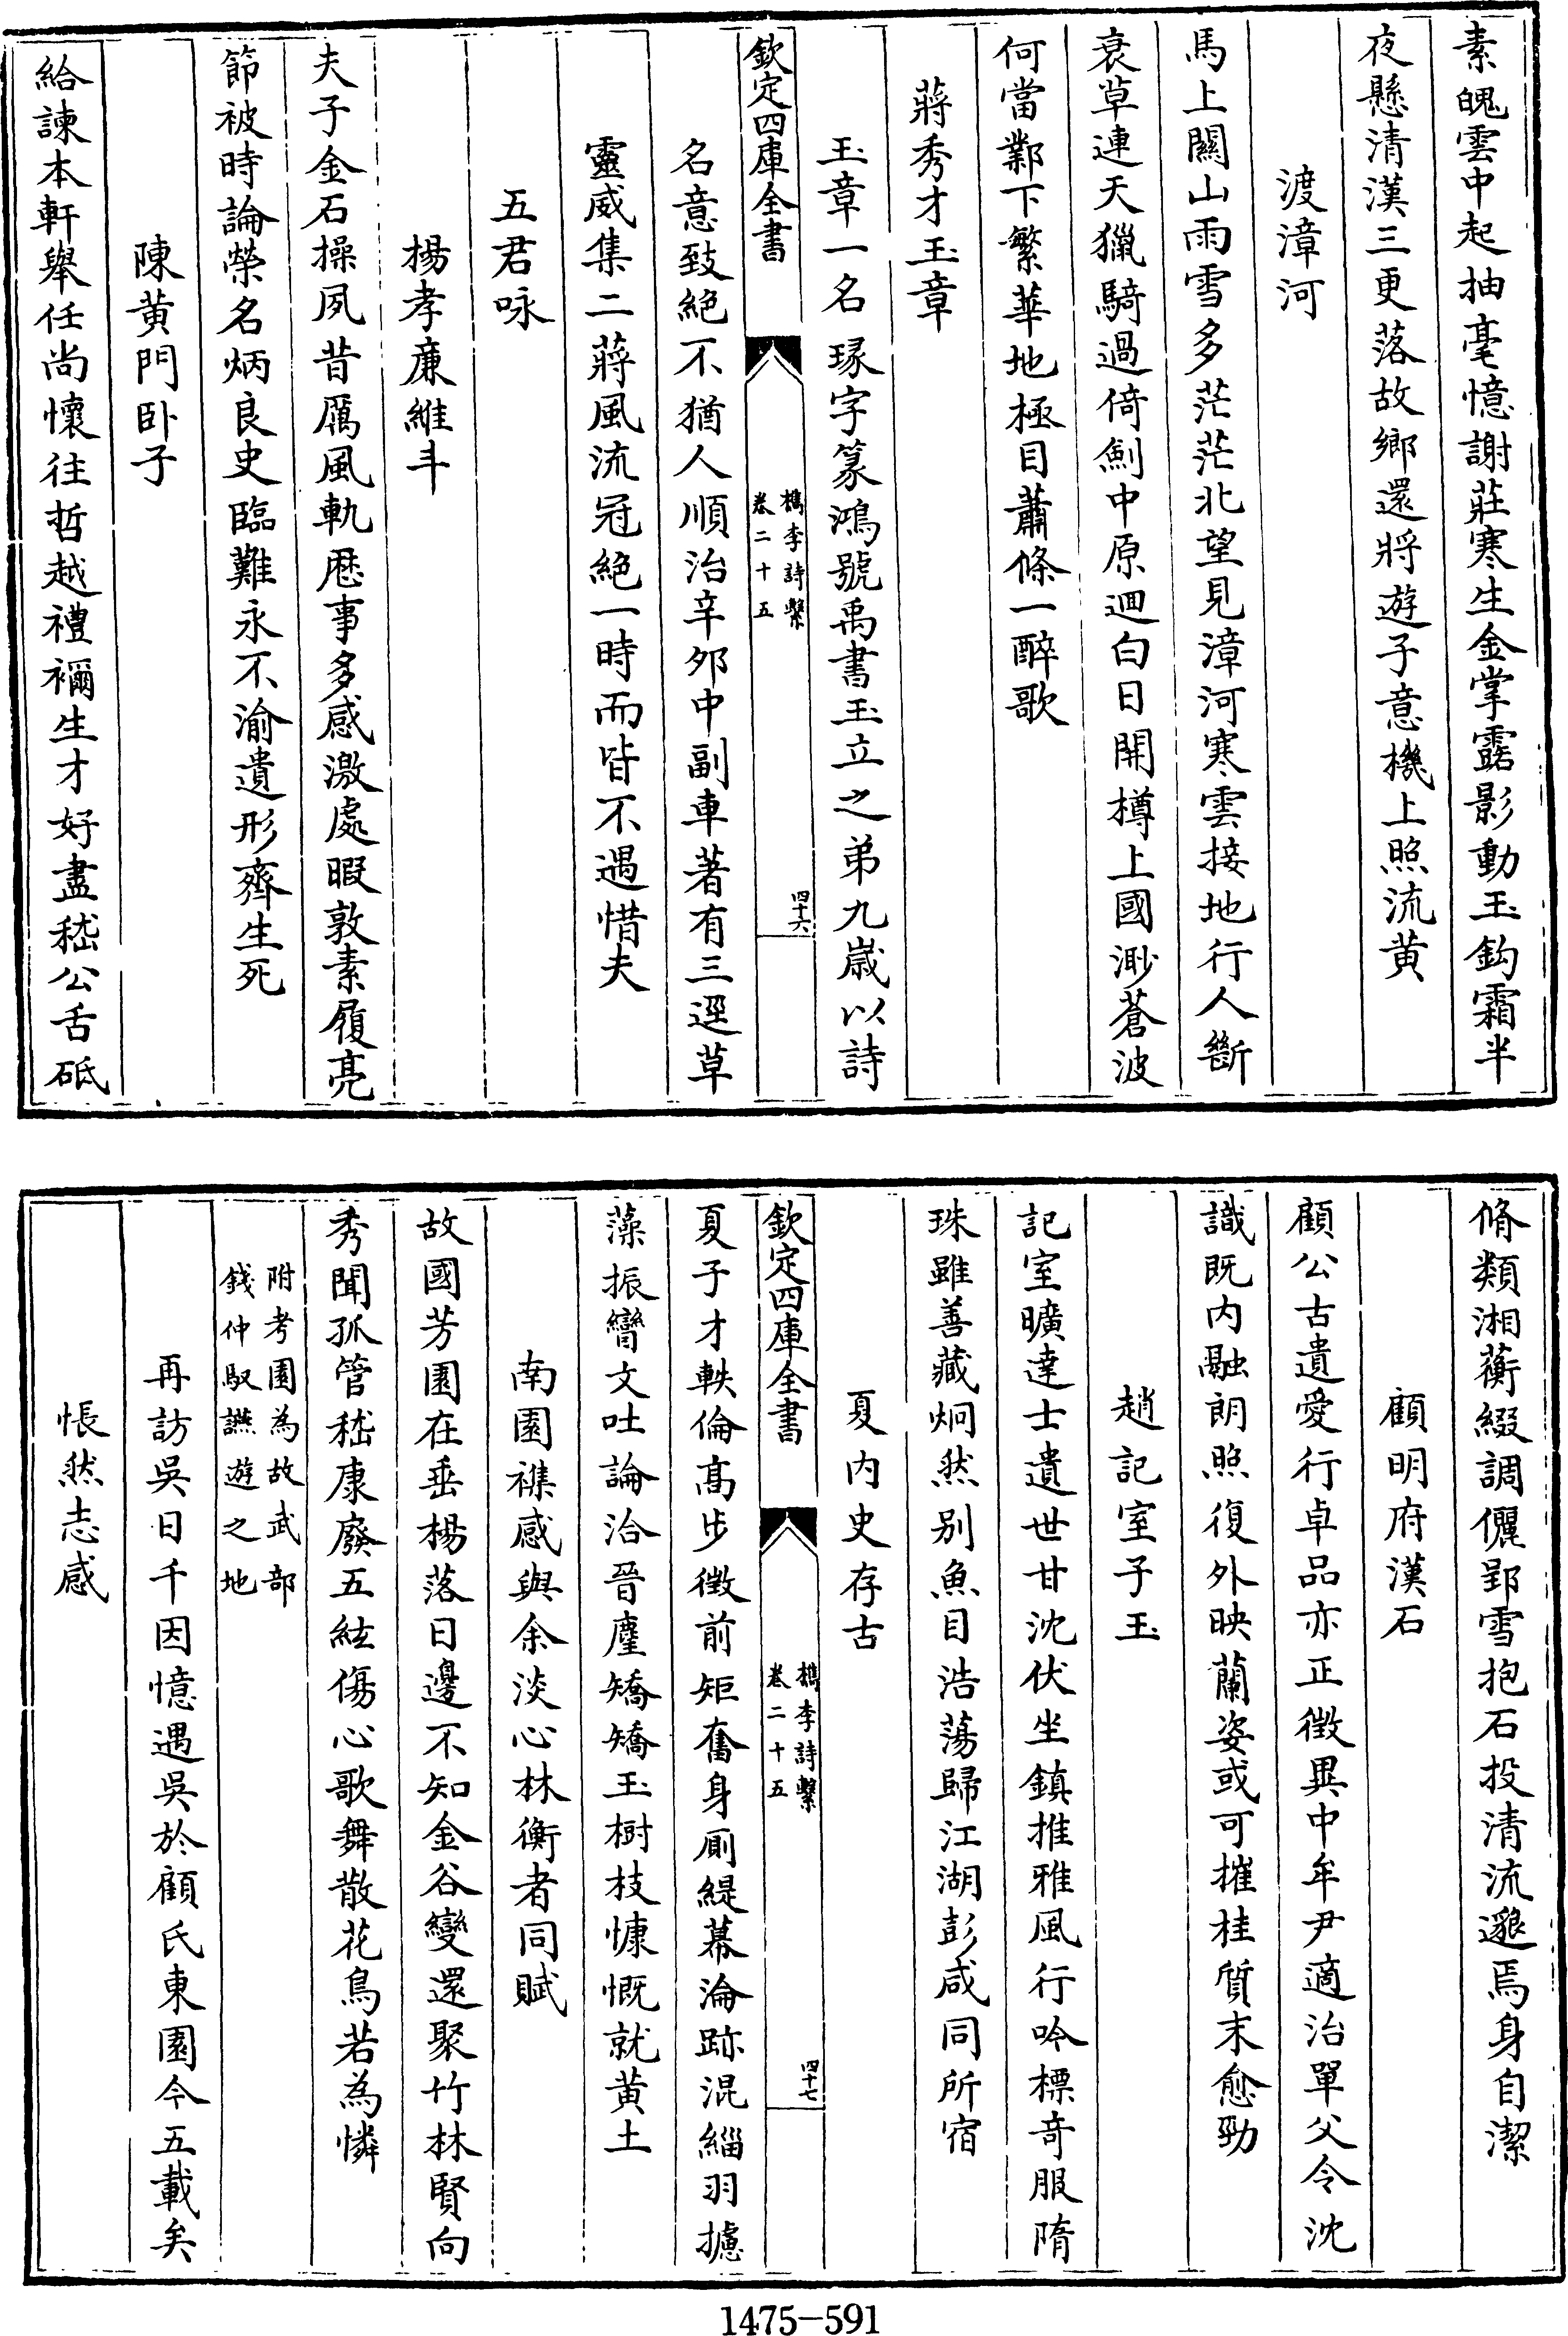 素魄雲中起抽毫憶謝莊寒生金掌露影動玉鈎霜半
夜懸清漢三更落故鄉還將遊子意機上照流黃
渡漳河
馬上關山雨雪多茫茫北望見漳河寒雲接地行人斷
衰草連天獵騎過倚劍中原迴白日開樽上國渺蒼波
何當鄴下繁華地極目蕭條一醉歌
蔣秀才玉章
玉章一名琭字篆鴻號禹書玉立之弟九歲以詩
欽定四庫全書
檇李詩繫
卷二十五
四十六
名意致絕不猶人順治辛夘中副車著有三逕草
靈威集二蔣風流冠絕一時而皆不遇惜夫
五君咏
楊孝廉維斗
夫子金石操夙昔厲風軌厯事多感激處暇敦素履亮
節被時論榮名炳良史臨難永不渝遺形齊生死
陳黃門卧子
給諫本軒舉任尚懷往哲越禮禰生才好盡嵇公舌砥
脩類湘蘅綴調儷郢雪抱石投清流邈焉身自潔
顧明府漢石
顧公古遺愛行卓品亦正徵異中牟尹適治單父令沈
識既内融朗照復外映蘭姿或可摧桂質末愈勁
趙記室子玉
記室曠達士遺世甘沈伏坐鎮推雅風行吟標奇服隋
珠雖善藏炯然别魚目浩蕩歸江湖彭咸同所宿
夏内史存古
欽定四庫全書
檇李詩繫
卷二十五
四十七
夏子才軼倫髙步徴前矩奮身厠緹幕淪跡混緇羽攄
藻振彎文吐論治晉麈矯矯玉樹枝慷慨就黃土
南園襍感與余淡心林衡者同賦
故國芳園在垂楊落日邊不知金谷變還聚竹林賢向
秀聞孤管嵇康廢五絃傷心歌舞散花鳥若為憐
附考園為故武部
錢仲馭讌遊之地
再訪吳日千因憶遇吳於顧氏東園今五載矣
悵然志感
1475-591